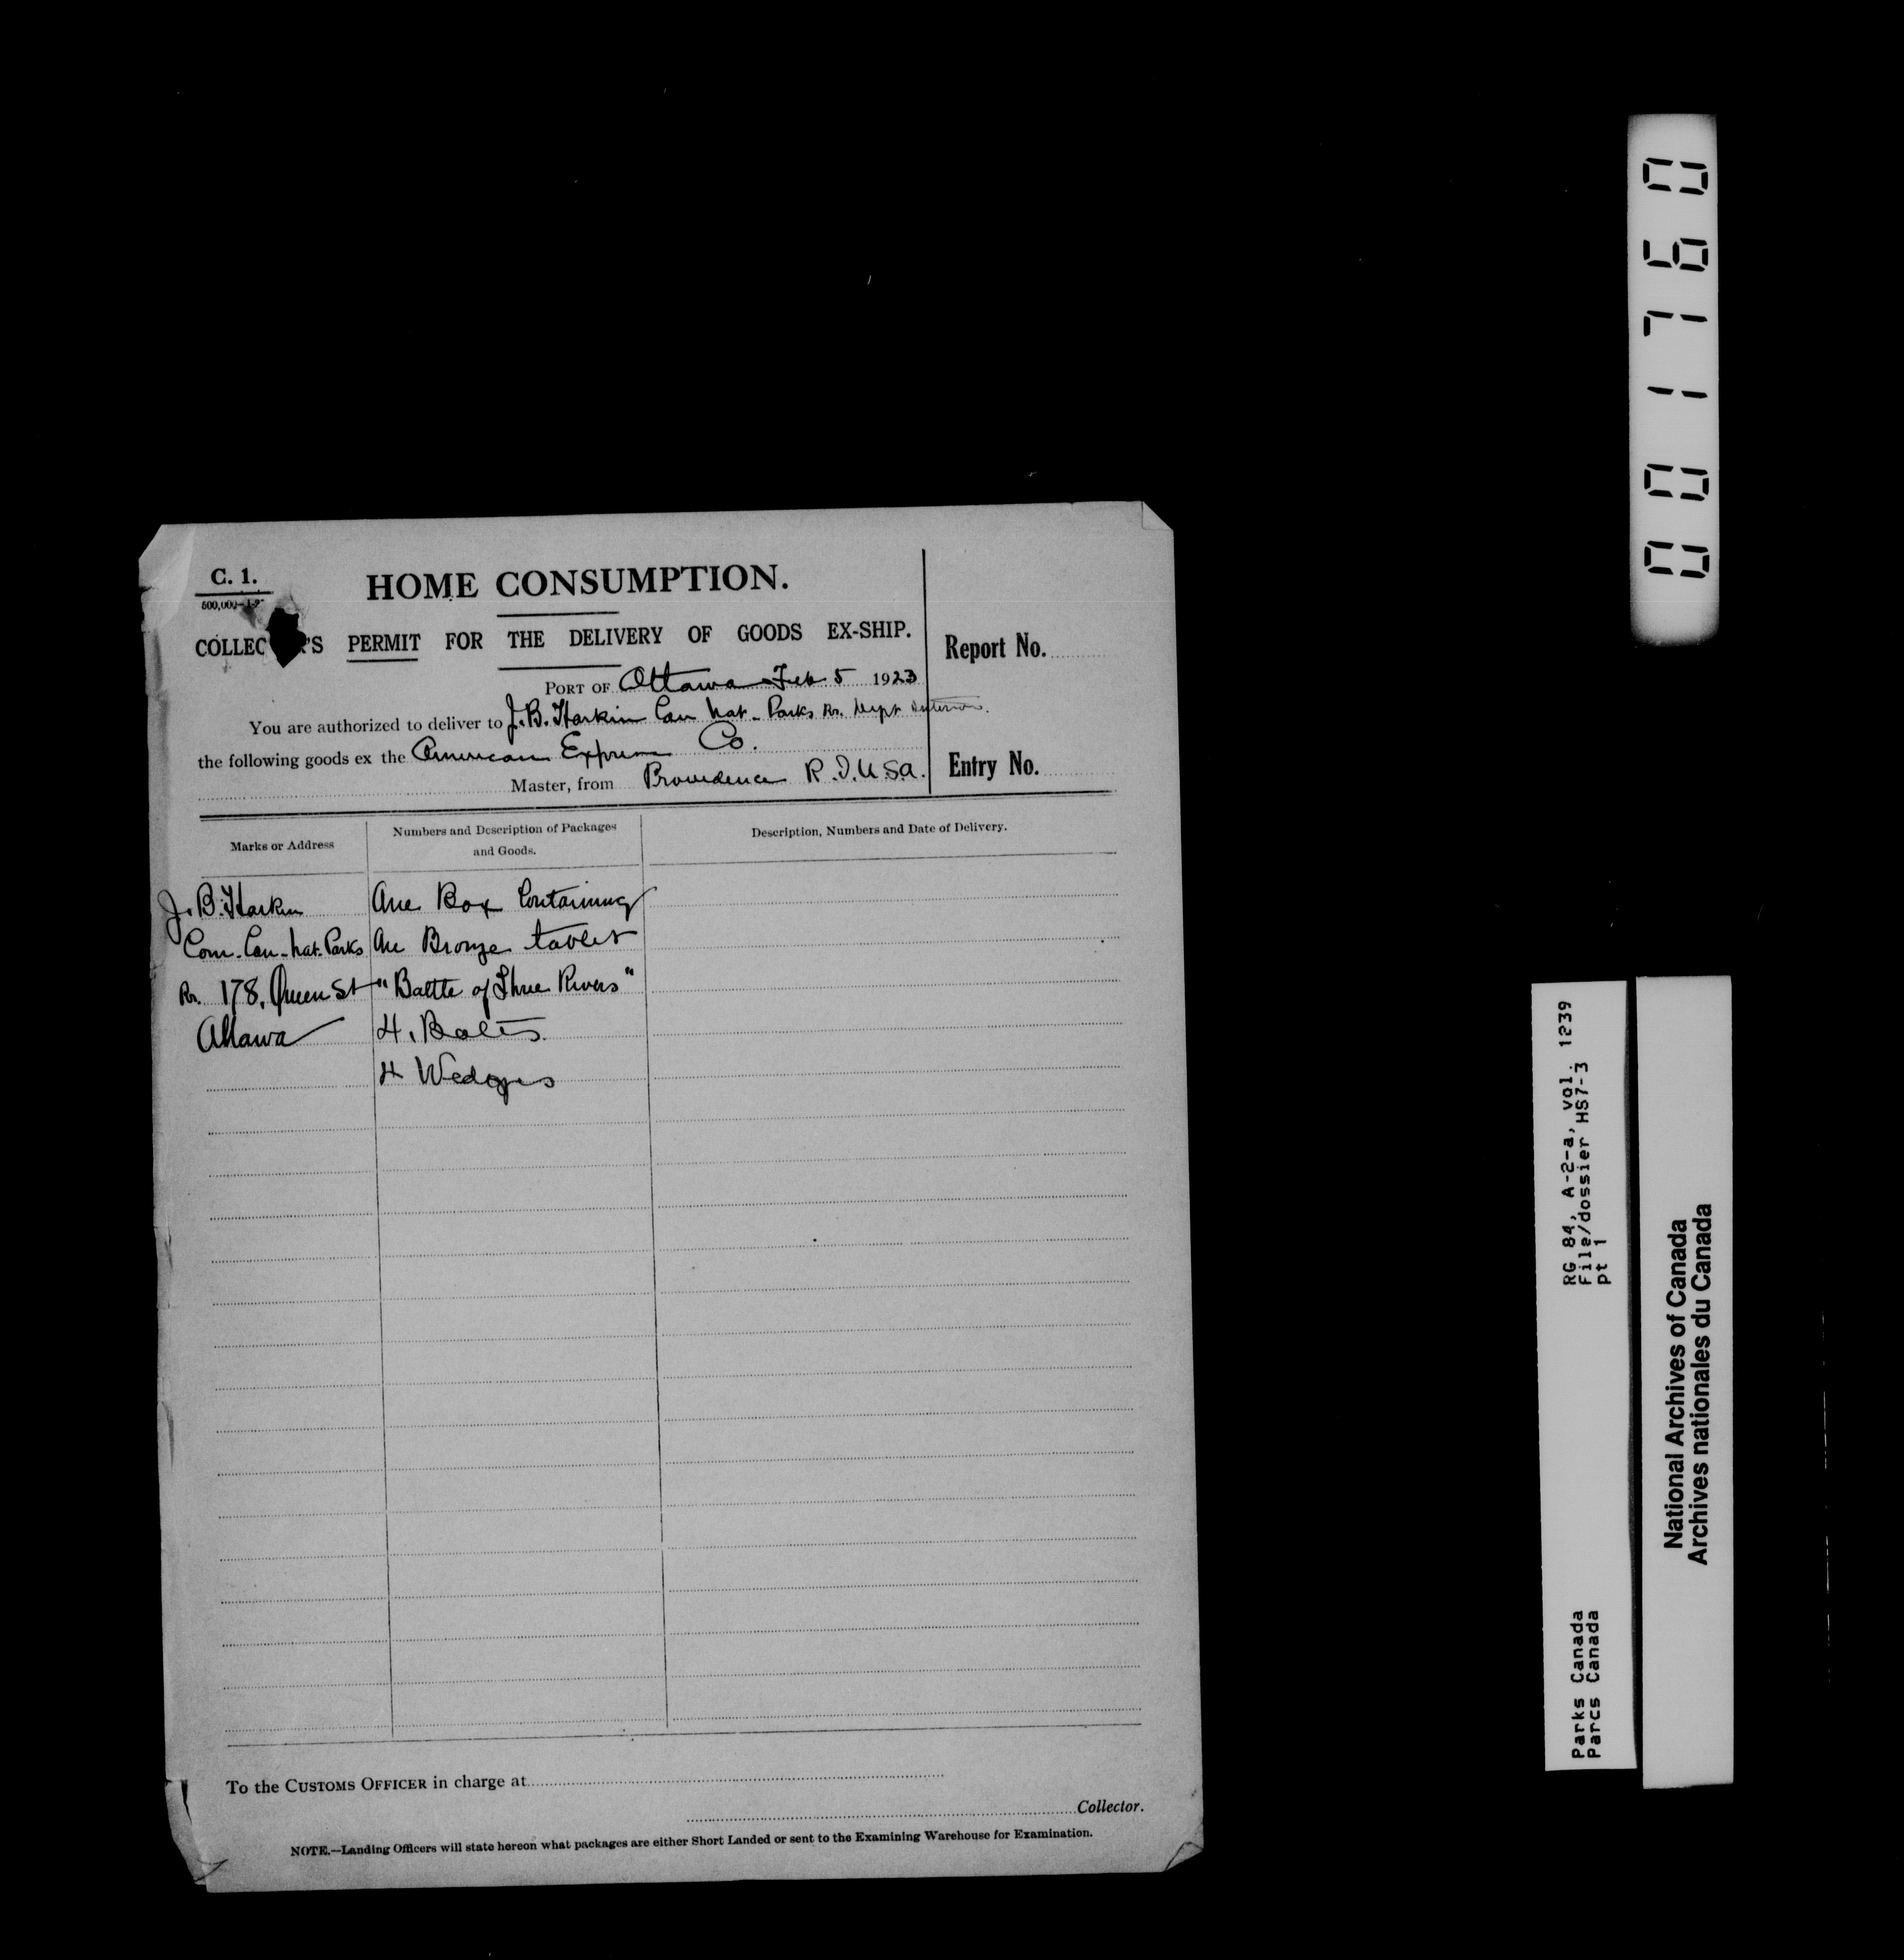 C. 1.
HOME CONSUMPTION.
COLLEC 'S PERMIT FOR THE DELIVERY OF GOODS EX-SHIP.
Report No.
PORT OF Ottawa Feb 5 1923
You are authorized to deliver to J. B. Harkin Can Nat. Parks Br. Dept Interior.
the following goods ex the American Express Co.
Master, from Providence R.I. U.S.A.
Entry No.
Marks or Address
Numbers and Description of Packages
and Goods.
Description, Numbers and Date of Delivery.
J. B. Harkin
One Box Containing
Com. Can. Nat. Parks
One Bronze tablet
Br. 178, Queen St
"Battle of Three Rivers"
Ottawa
4. Bolts
4 Wedges
To the CUSTOMS OFFICER in charge at
Collector.
NOTE.—Landing Officers will state hereon what packages are either Short Landed or sent to the Examining Warehouse for Examination.
001760
RG 84, A-2-a, vol. 1239
File/dossier HS7-3
pt 1
Parks Canada
Parcs Canada
National Archives of Canada
Archives nationales du Canada